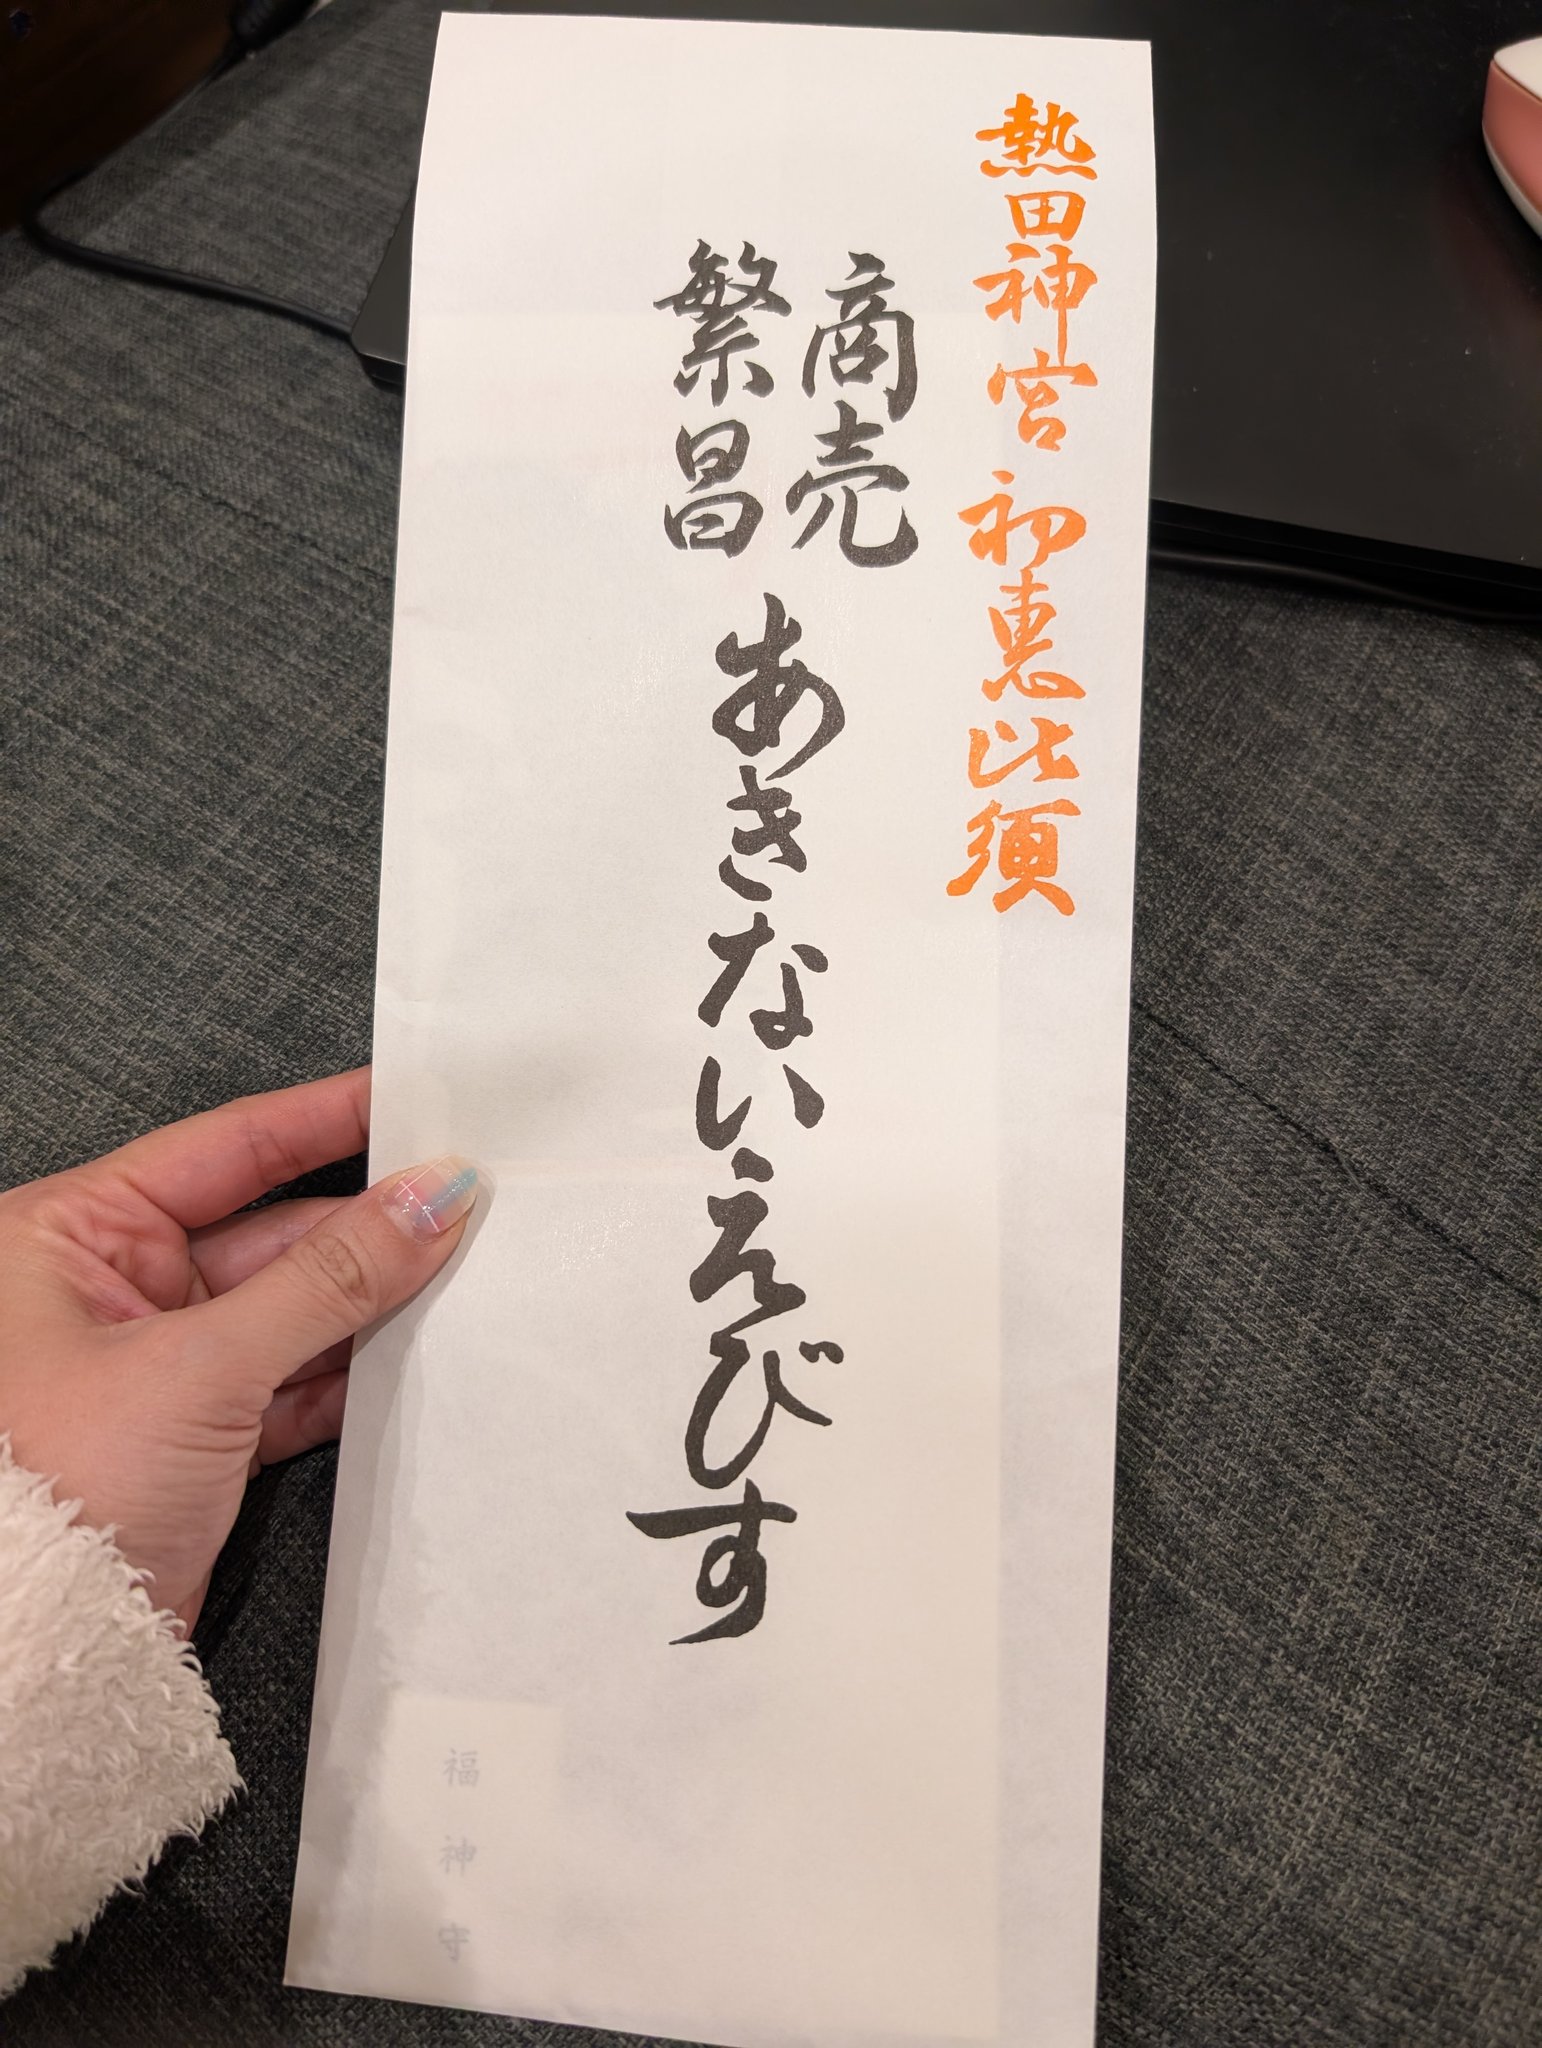 熱田神宮 初恵比須
商売
繁昌
あきないえびす
福神守